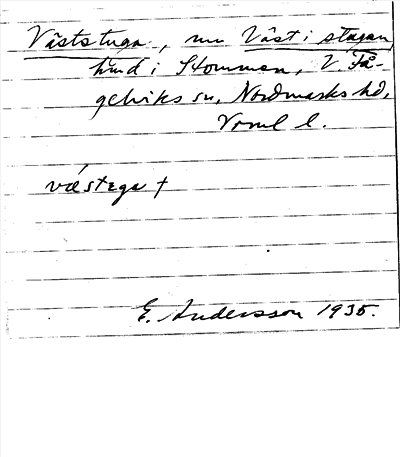 Väststuga, nu Väst i stugan,
hmd i Hommen, V. Få-
gelviks sn, Nordmarks hd,
Vrml l.
væ´stega †
E. Andersson 1935.